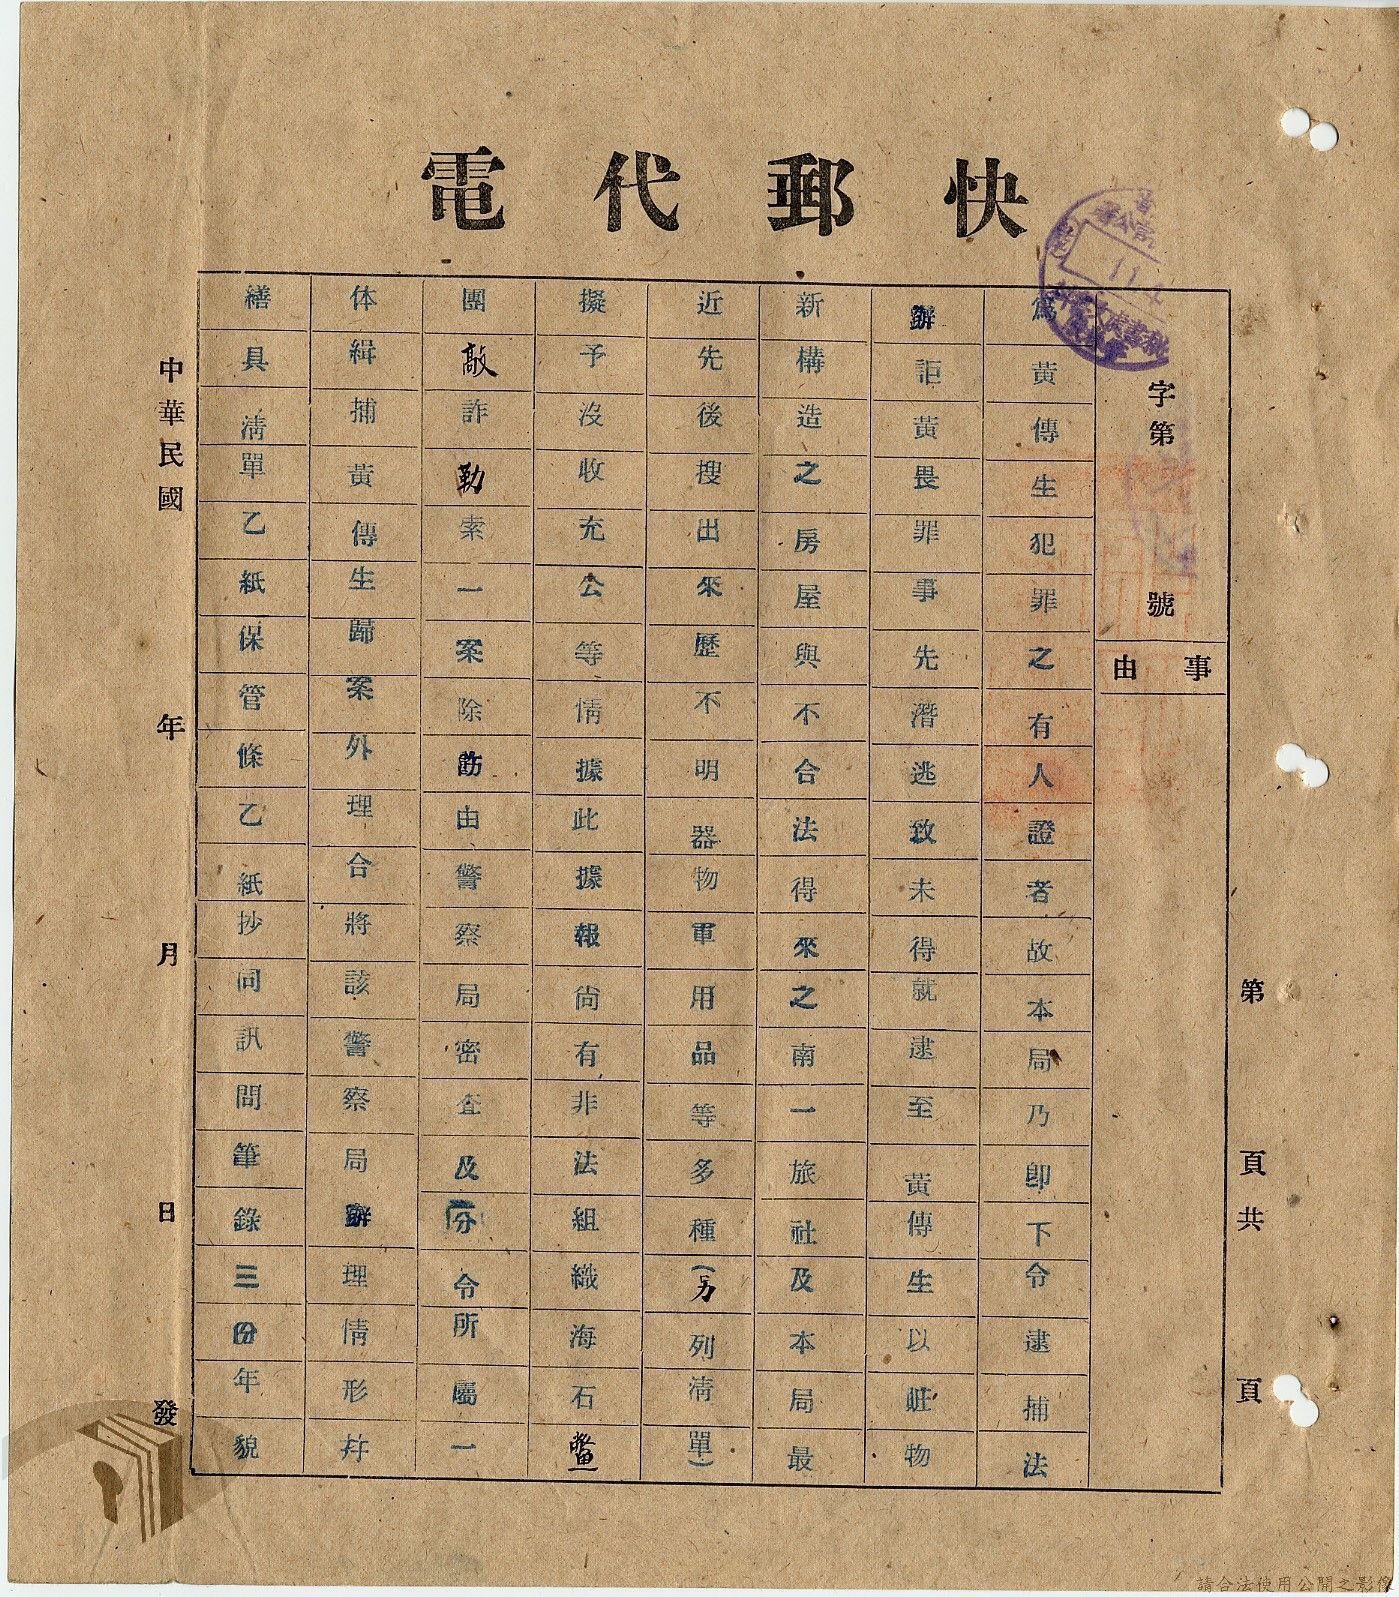 快郵代電
字第 號
事由
為黃傳生犯罪之有人證者故本局乃卽下令逮捕法
辦詎黃畏罪事先潛逃致未得就逮至黃傳生以賍物
新構造之房屋與不合法得來之南一旅社及本局最
近先後搜出來歷不明器物軍用品等多種(另列淸單)
擬予沒收充公等情據此據報尚有非法組織海石鱉
團敲詐勒索一案除飭由警察局密查及分令所屬一
体緝捕黃傳生歸案外理合將該警察局辦理情形幷
繕具淸單乙紙保管條乙紙抄同訊問筆錄三份年貌
中華民國 年 月 日發
第 頁共 頁
11.4
請合法使用公開之影像